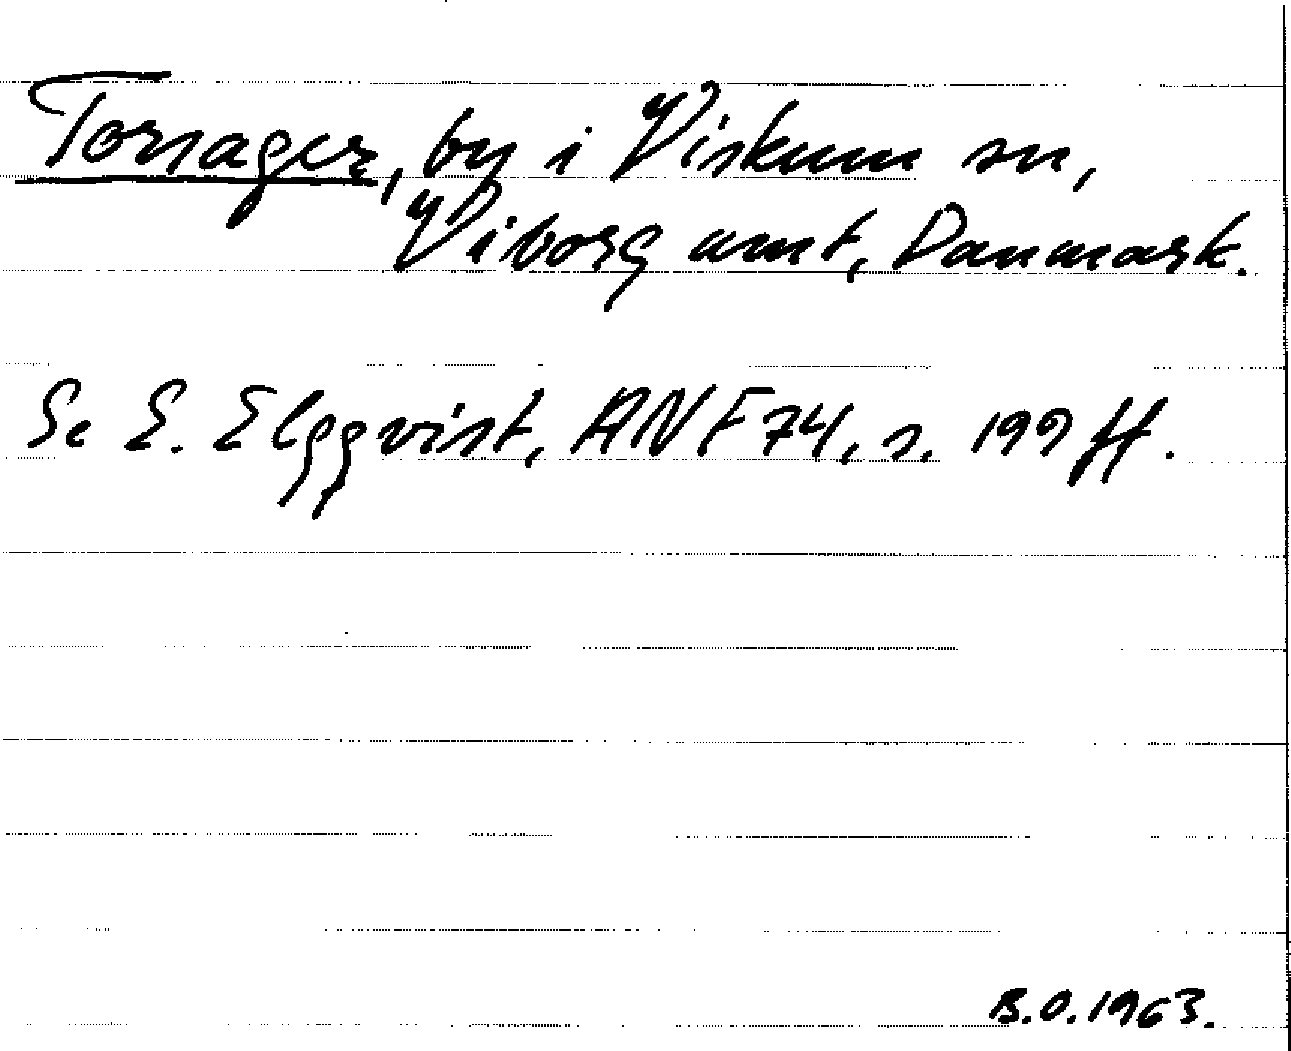 Torsager, by i Viskum sn,
Viborg amt, Danmark.
Se E. Elgqvist, ANF 74, s. 199 ff.
B.O. 1963.